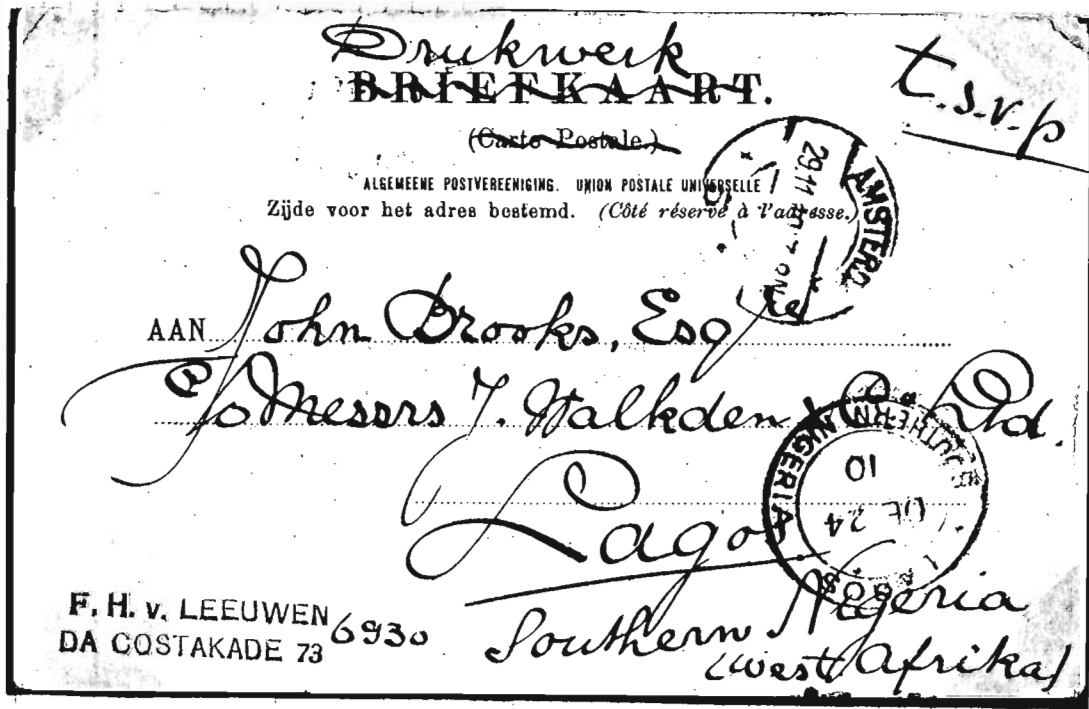 Drukwerk
BRIEFKAART.
t.s.v.p
(Carte Postale.)
ALGEMEENE POSTVEREENIGING. UNION POSTALE UNIVERSELLE
Zijde voor het adres bestemd. (Côté réservé à l'adresse.)
AMSTERD
29.11
AAN John Brooks, Esq
c/o Messrs J. Walkden & Co. Ltd.
Lagos.
SOUTHERN NIGERIA
DE 24
10
LAGOS
Southern Nigeria
(West Afrika)
F. H. v. LEEUWEN
DA COSTAKADE 73
6930